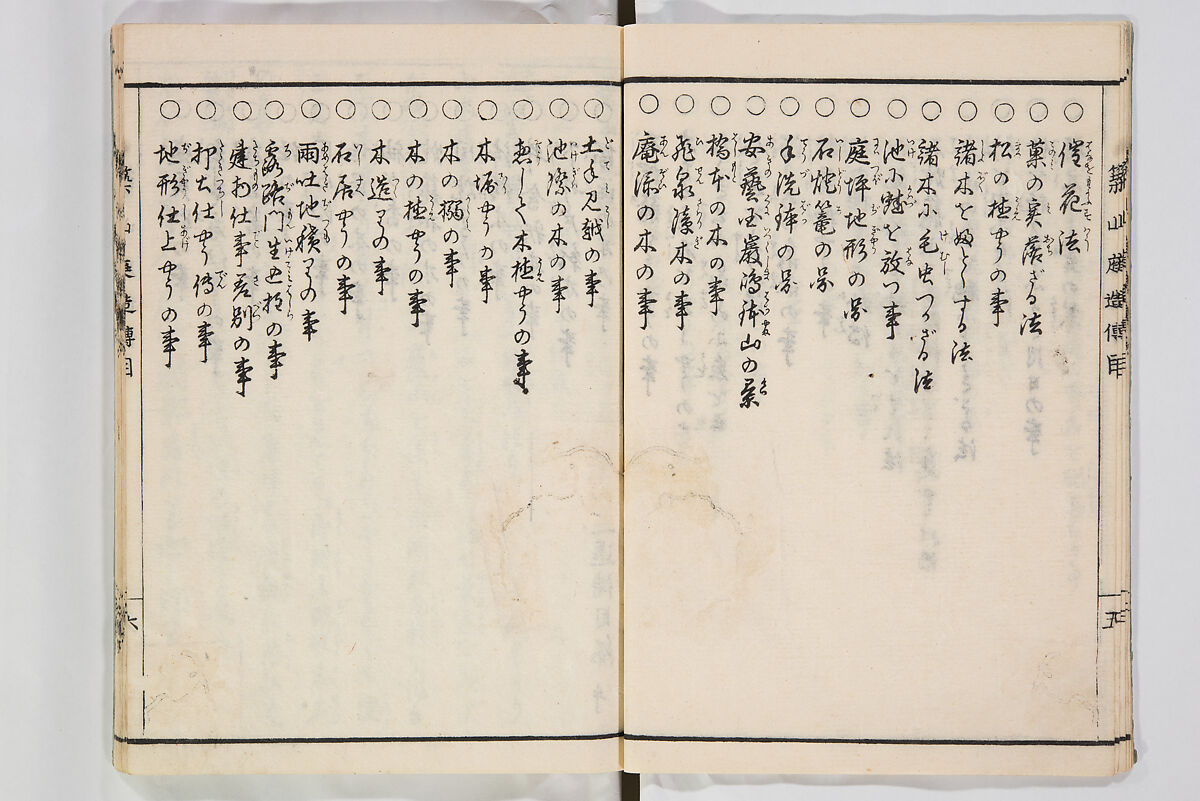 築山庭造傳目
五
○菓の実落ざる法
○松の植やうの事
○諸木をふとくする法
○諸木に毛虫つかざる法
○池に魚を放つ事
○庭坪地形の図
○石燈篭の図
○手洗鉢の図
○安藝国嚴嶋弥山の景
○橋本の木の事
○庵添の木の事
○土手見越の事
○池際の木の事
○惣じて木植やうの事
○木堀やうの事
○木の事
○木の植やうの事
○木造りの事
○石居やうの事
○雨吐地積りの事
○露路門生垣の事
○建前仕事差別の事
○打土仕やう傳の事
○地形仕上やうの事
六